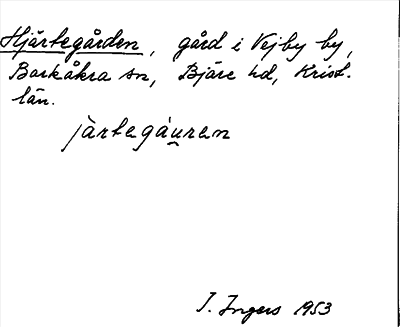 Hjärtegården, gård i Vejby by,
Barkåkra sn, Bjäre hd, Krist.
län.
jàrtegáu̯ren
I. Ingers 1953